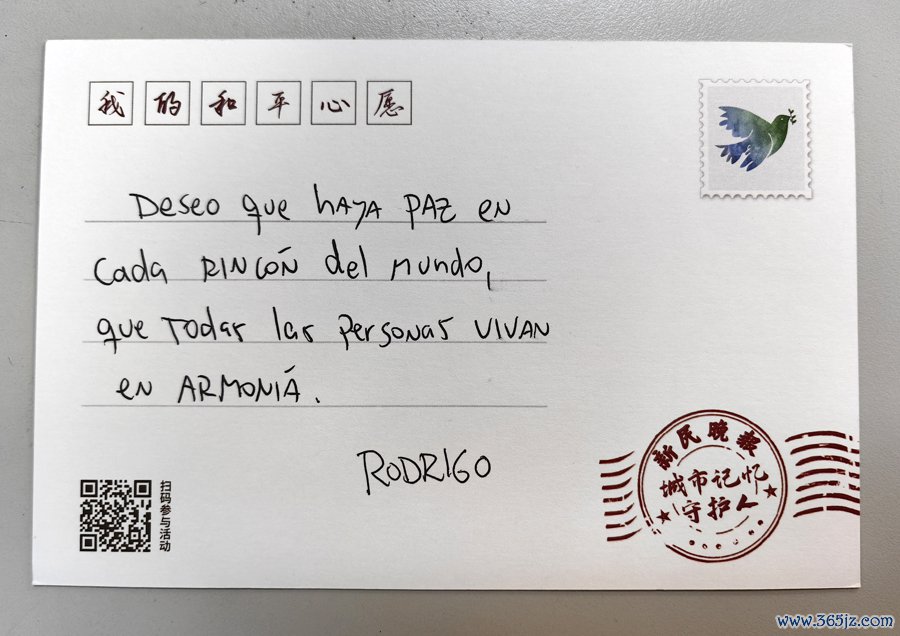 我的和平心愿
Deseo que haya paz en
cada rincón del mundo,
que todas las personas vivan
en armoniá.
RODRIGO
扫码参与活动
新民晚报
城市记忆
守护人
www.365jz.com